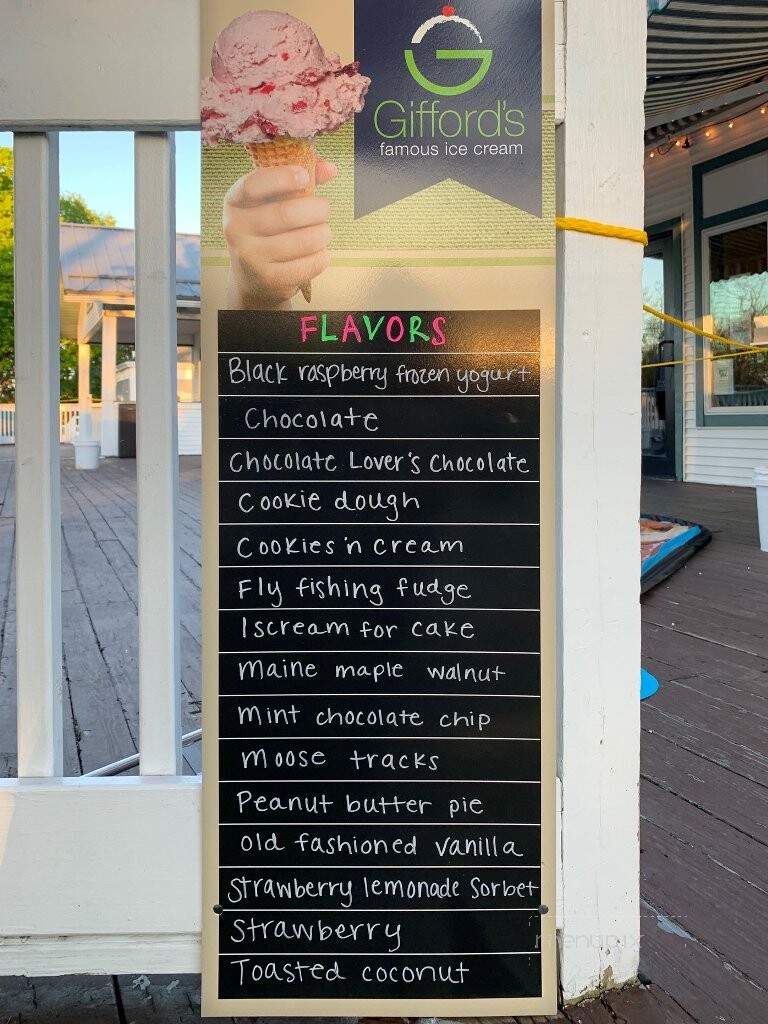 Gifford's
famous ice cream
FLAVORS
Black raspberry frozen yogurt
Chocolate
Chocolate Lover's Chocolate
Cookie dough
Cookies 'n cream
Fly fishing fudge
Iscream for cake
Maine maple walnut
Mint chocolate chip
Moose tracks
Peanut butter pie
Old fashioned vanilla
Strawberry lemonade Sorbet
Strawberry
Toasted coconut
menupix